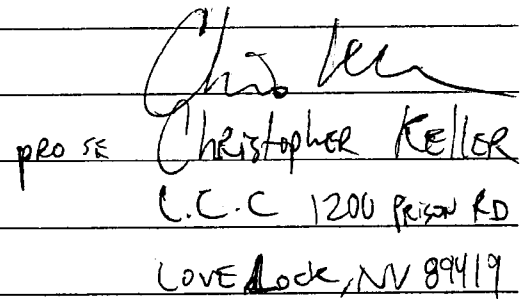 Chris Keller
pro se Christopher Keller
L.C.C 1200 Prison RD
Lovelock, NV 89419